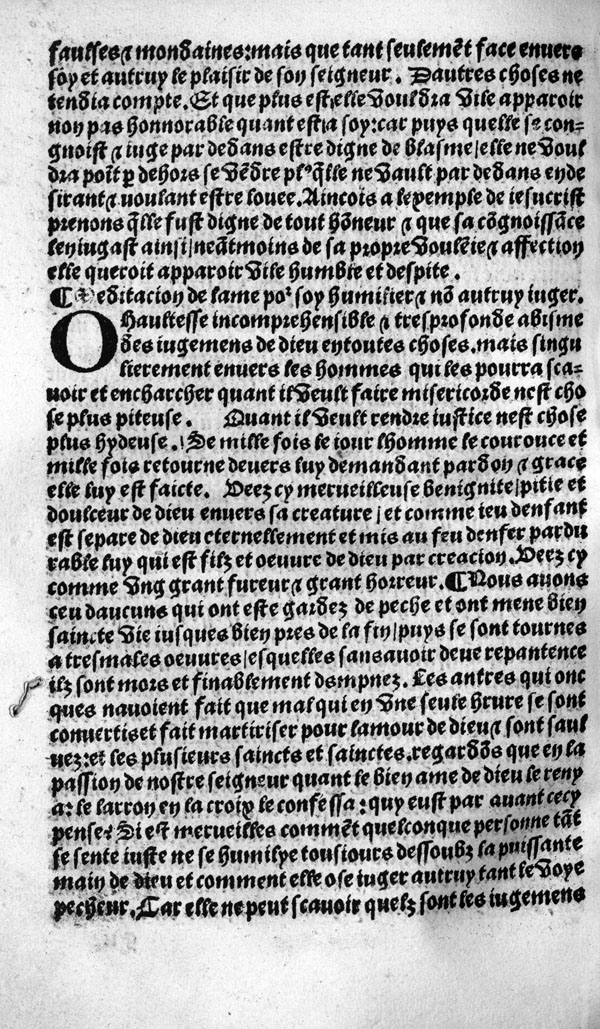 faulses ⁊ mondaines: mais que tant seulemēt face enuers
soy et autruy le plaisir de son seigneur. Dautres choses ne
tendra compte. Et que plus est / elle vouldra vile apparoir
non pas honnorable quant est a soy: car puys quelle se con-
gnoist ⁊ iuge par dedans estre digne de blasme / elle ne voul
dra poīt p̲ dehors se vēdre plꝰ q̄lle ne vault par dedans en de
sirant ⁊ voulant estre louee. Aincois a lexemple de iesucrist
prenons q̄lle fust digne de tout hōneur ⁊ que sa cōgnoissāce
len iugast ainsi / neātmoins de sa propre voulēte ⁊ affection
elle queroit apparoir vile humble et despite.
¶ Meditacion de lame poʳ soy humilier ⁊ nō autruy iuger.
O haultesse incomprehensible ⁊ tresprofonde abisme
des iugemens de dieu en toutes choses. mais singu
lierement enuers les hommes qui les pourra sca-
uoir et encharcher quant il veult faire misericorde nest cho
se plus piteuse. Quant il veult rendre iustice nest chose
plus hydeuse. / Se mille fois le iour lhomme le courouce et
mille fois retourne deuers luy demandant pardon ⁊ grace
elle luy est faicte. Veez cy merueilleuse benignite / pitie et
doulceur de dieu enuers sa creature / et comme ieu denfant
est separe de dieu eternellement et mis au feu denfer pardu
rable luy qui est filz et oeuure de dieu par creacion. Veez cy
comme vng grant fureur ⁊ grant horreur. ¶ Nous auons
ceu daucuns qui ont este gardez de peche et ont mene bien
saincte vie iusques bien pres de la fin / puys se sont tournes
a tresmales oeuures / esquelles sans auoir deue repantence
ilz sont mors et finablement dampnez. Les autres qui onc
ques nauoient fait que mal qui en vne seule heure se sont
conuertis et fait martiriser pour lamour de dieu ⁊ sont saul
uez: et les plusieurs saincts et sainctes. regardōs que en la
passion de nostre seigneur quant le bien ame de dieu le reny
a: le larron en la croix le confessa: quy eust par auant cecy
pense? Si est merueilles commēt quelconque personne tāt
se sente iuste ne se humilye tousiours dessoubz la puissante
main de dieu et comment elle ose iuger autruy tant le voye
pecheur. Car elle ne peut scauoir quelz sont les iugemens